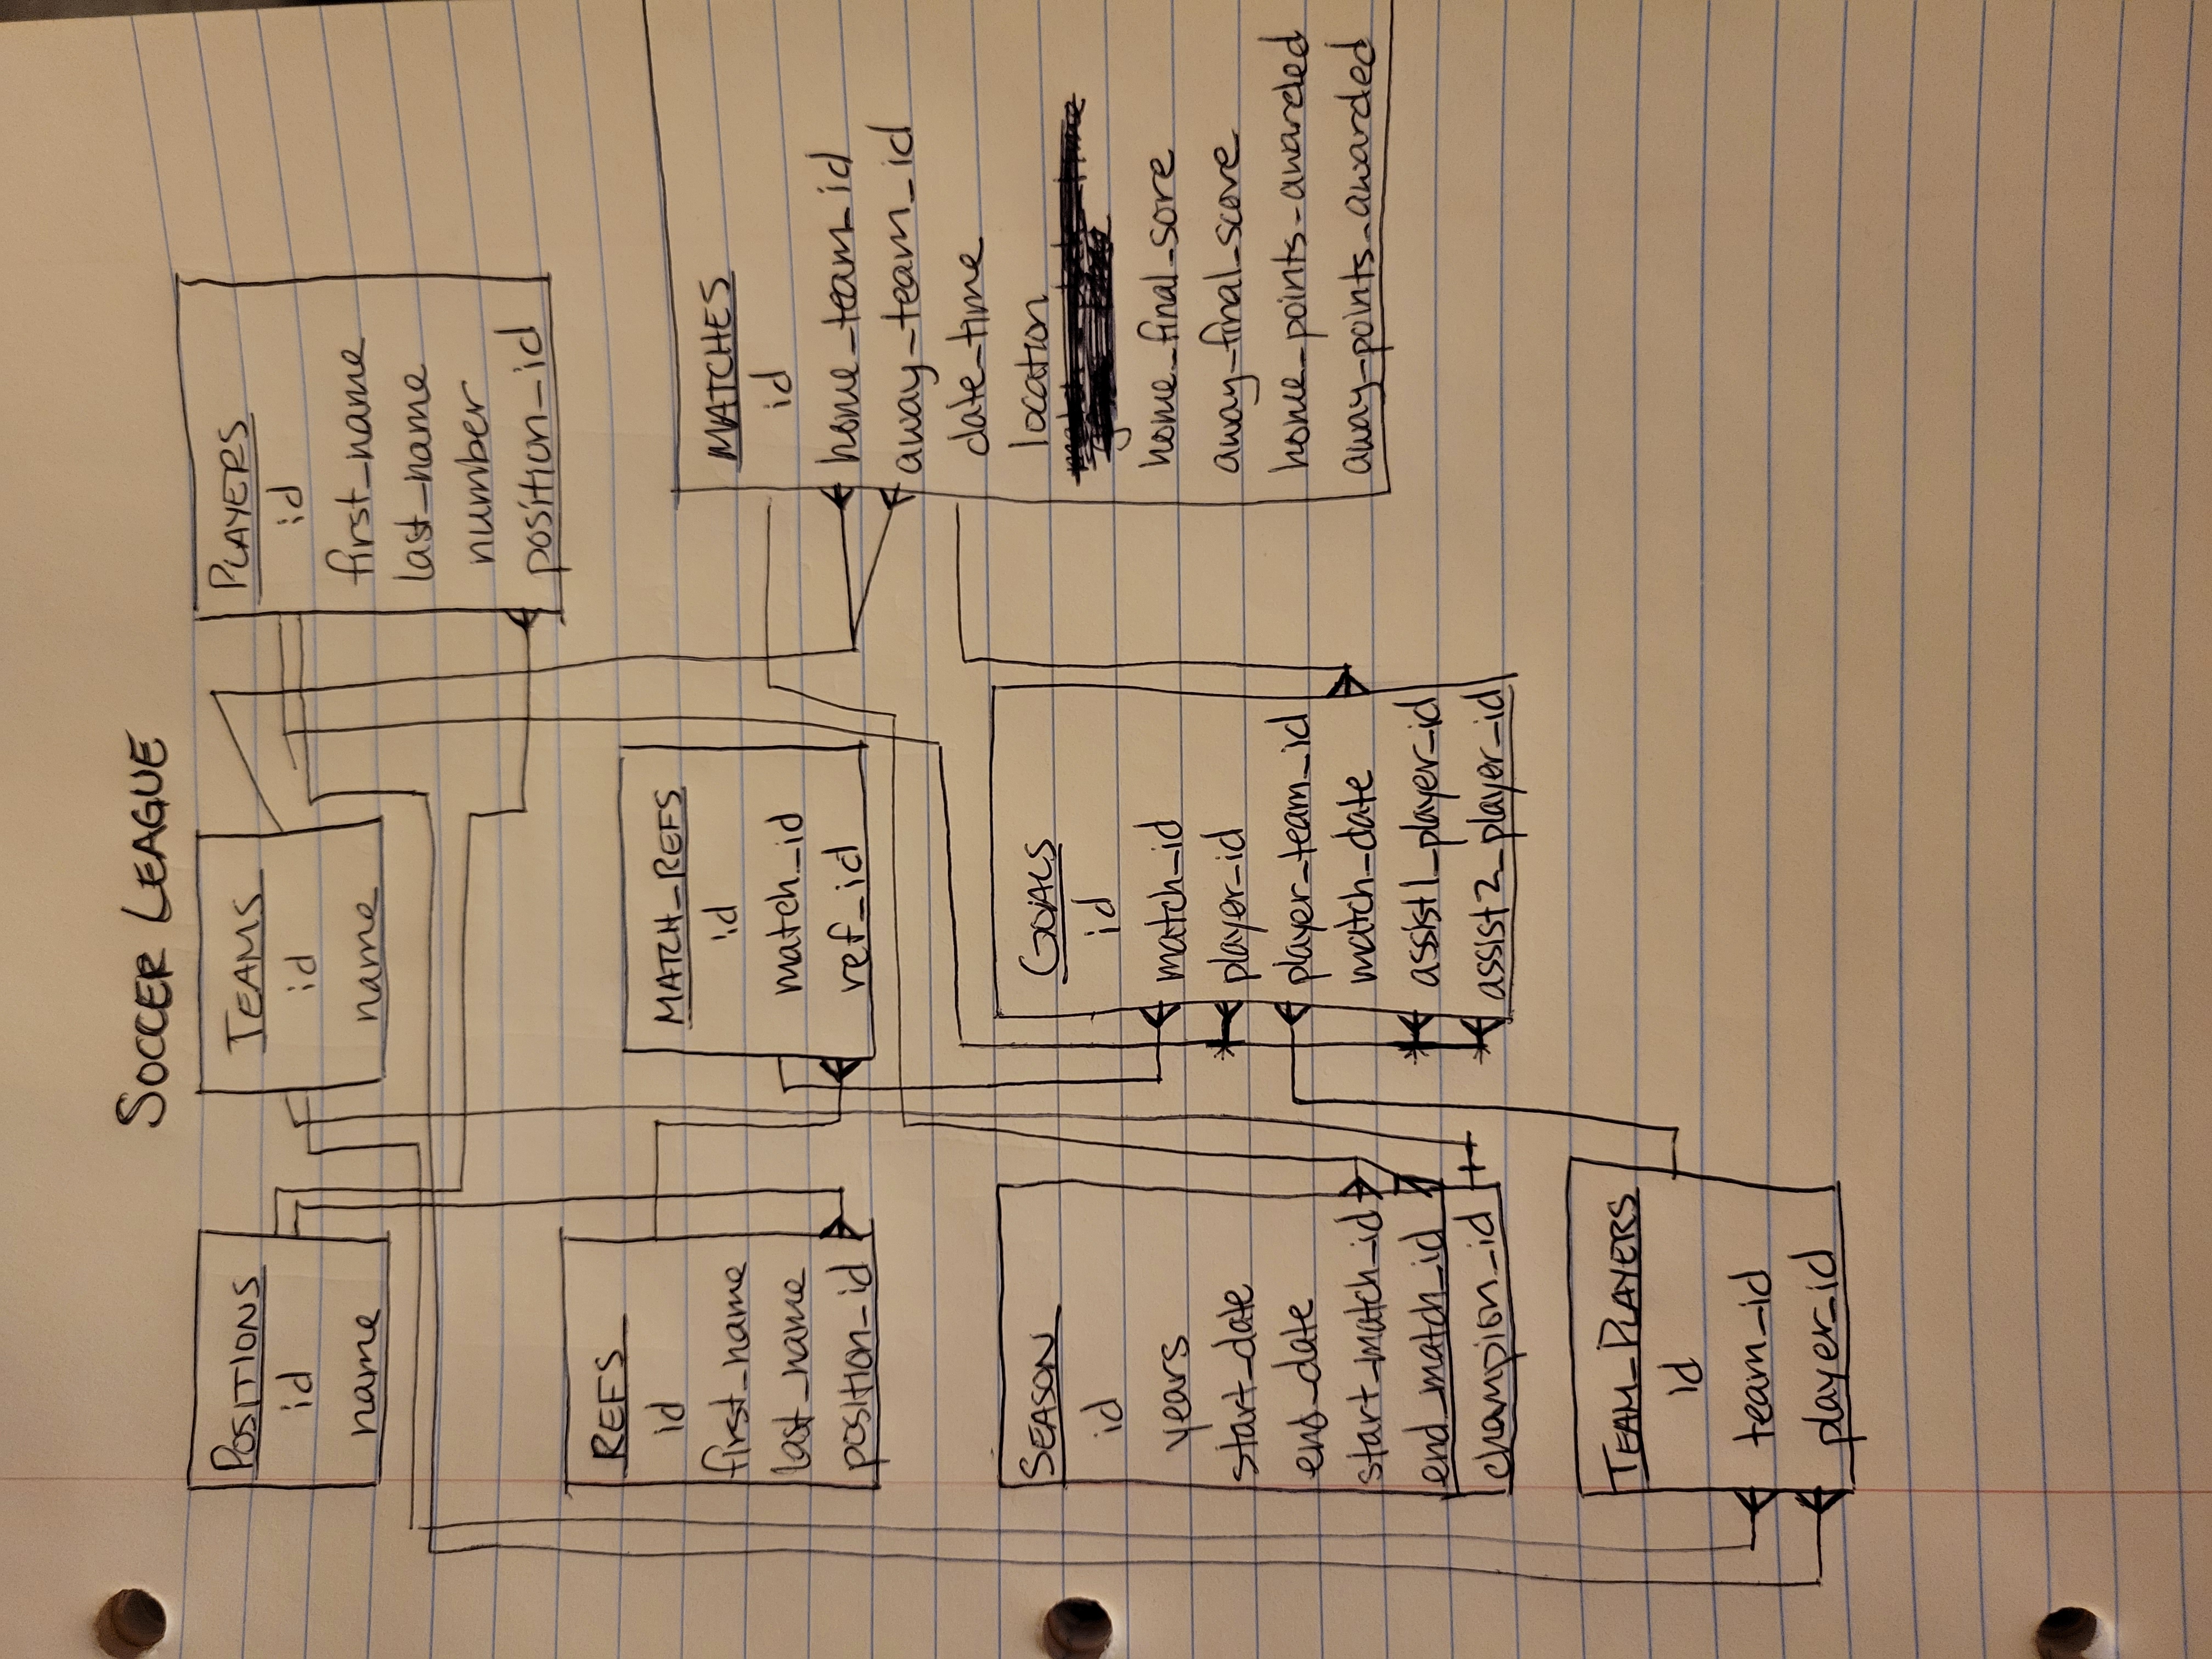 SOCCER LEAGUE
POSITIONS
id
name
TEAMS
id
name
PLAYERS
id
first_name
last_name
number
position_id
REFS
id
first_name
last_name
position_id
MATCH_REFS
id
match_id
ref_id
MATCHES
id
home_team_id
away_team_id
date_time
location
home_final_sore
away_final_score
home_points_awarded
away_points_awarded
SEASON
id
years
start_date
end_date
start_match_id
end_match_id
champion_id
GOALS
id
match_id
player_id
player_team_id
match_date
assist1_player_id
assist2_player_id
TEAM_PLAYERS
id
team_id
player_id